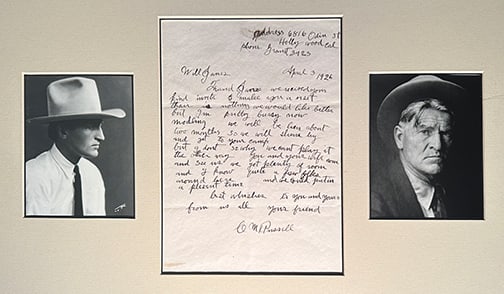 address 6816 Odin St
Hollywood Cal
phone Granet 3923
April 3 1926
Will James
Friend James we received your
kind invite to make you a visit
thair is nothing we would like better
but I'm pretty buisy now
modling we will be hear about
two months so we will shure try
and get to your camp
but I dont se why we cant play it
the other way You and your wife come
and se us we got plenty of room
and I know quite a fiew folks
around here and we could put in
a plesent time
best whishes to you and yours
from us all your friend
C M Russell